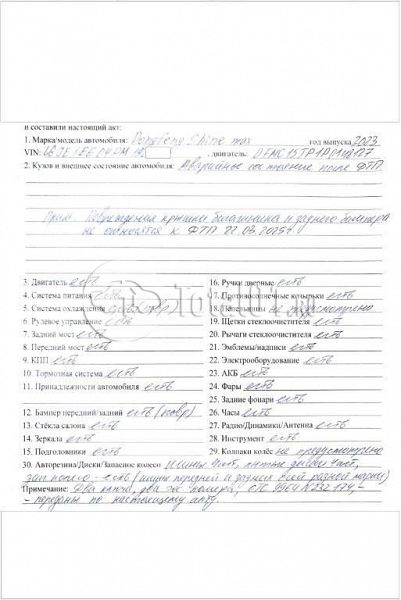 и составили настоящий акт:
1. Марка/модель автомобиля: Dongfeng Shine max год выпуска 2023
VIN: двигатель: DFMC15TP1
2. Кузов и внешнее состояние автомобиля: Аварийное состояние после ДТП.
Прим. Повреждения крышки багажника и заднего бампера
не относятся к ДТП 22.03.2025г
3. Двигатель есть
4. Система питания есть
5. Система охлаждения
6. Рулевое управление есть
7. Задний мост есть
8. Передний мост есть
9. КПП есть
10. Тормозная система есть
11. Принадлежности автомобиля есть
12. Бампер передний/задний есть (повр)
13. Стёкла салона есть
14. Зеркала есть
15. Подголовники есть
16. Ручки дверные есть
17. Противосолнечные козырьки есть
18. Пепельницы не предусмотрено
19. Щетки стеклоочистителя есть
20. Рычаги стеклоочистителя есть
21. Эмблемы/надписи есть
22. Электрооборудование есть
23. АКБ есть
24. Фары есть
25. Задние фонари есть
26. Часы есть
27. Радио/Динамики/Антенна есть
28. Инструмент есть
29. Колпаки колёс не предусмотрено
30. Авторезина/Диски/Запасное колесо Шины 4шт, литые диски 4шт,
зап колесо - есть (шины передней и задней осей разной марки)
Примечание: Два ключа, два гос номера, СТС 9964 №
- переданы по настоящему акту.
Total01.ru